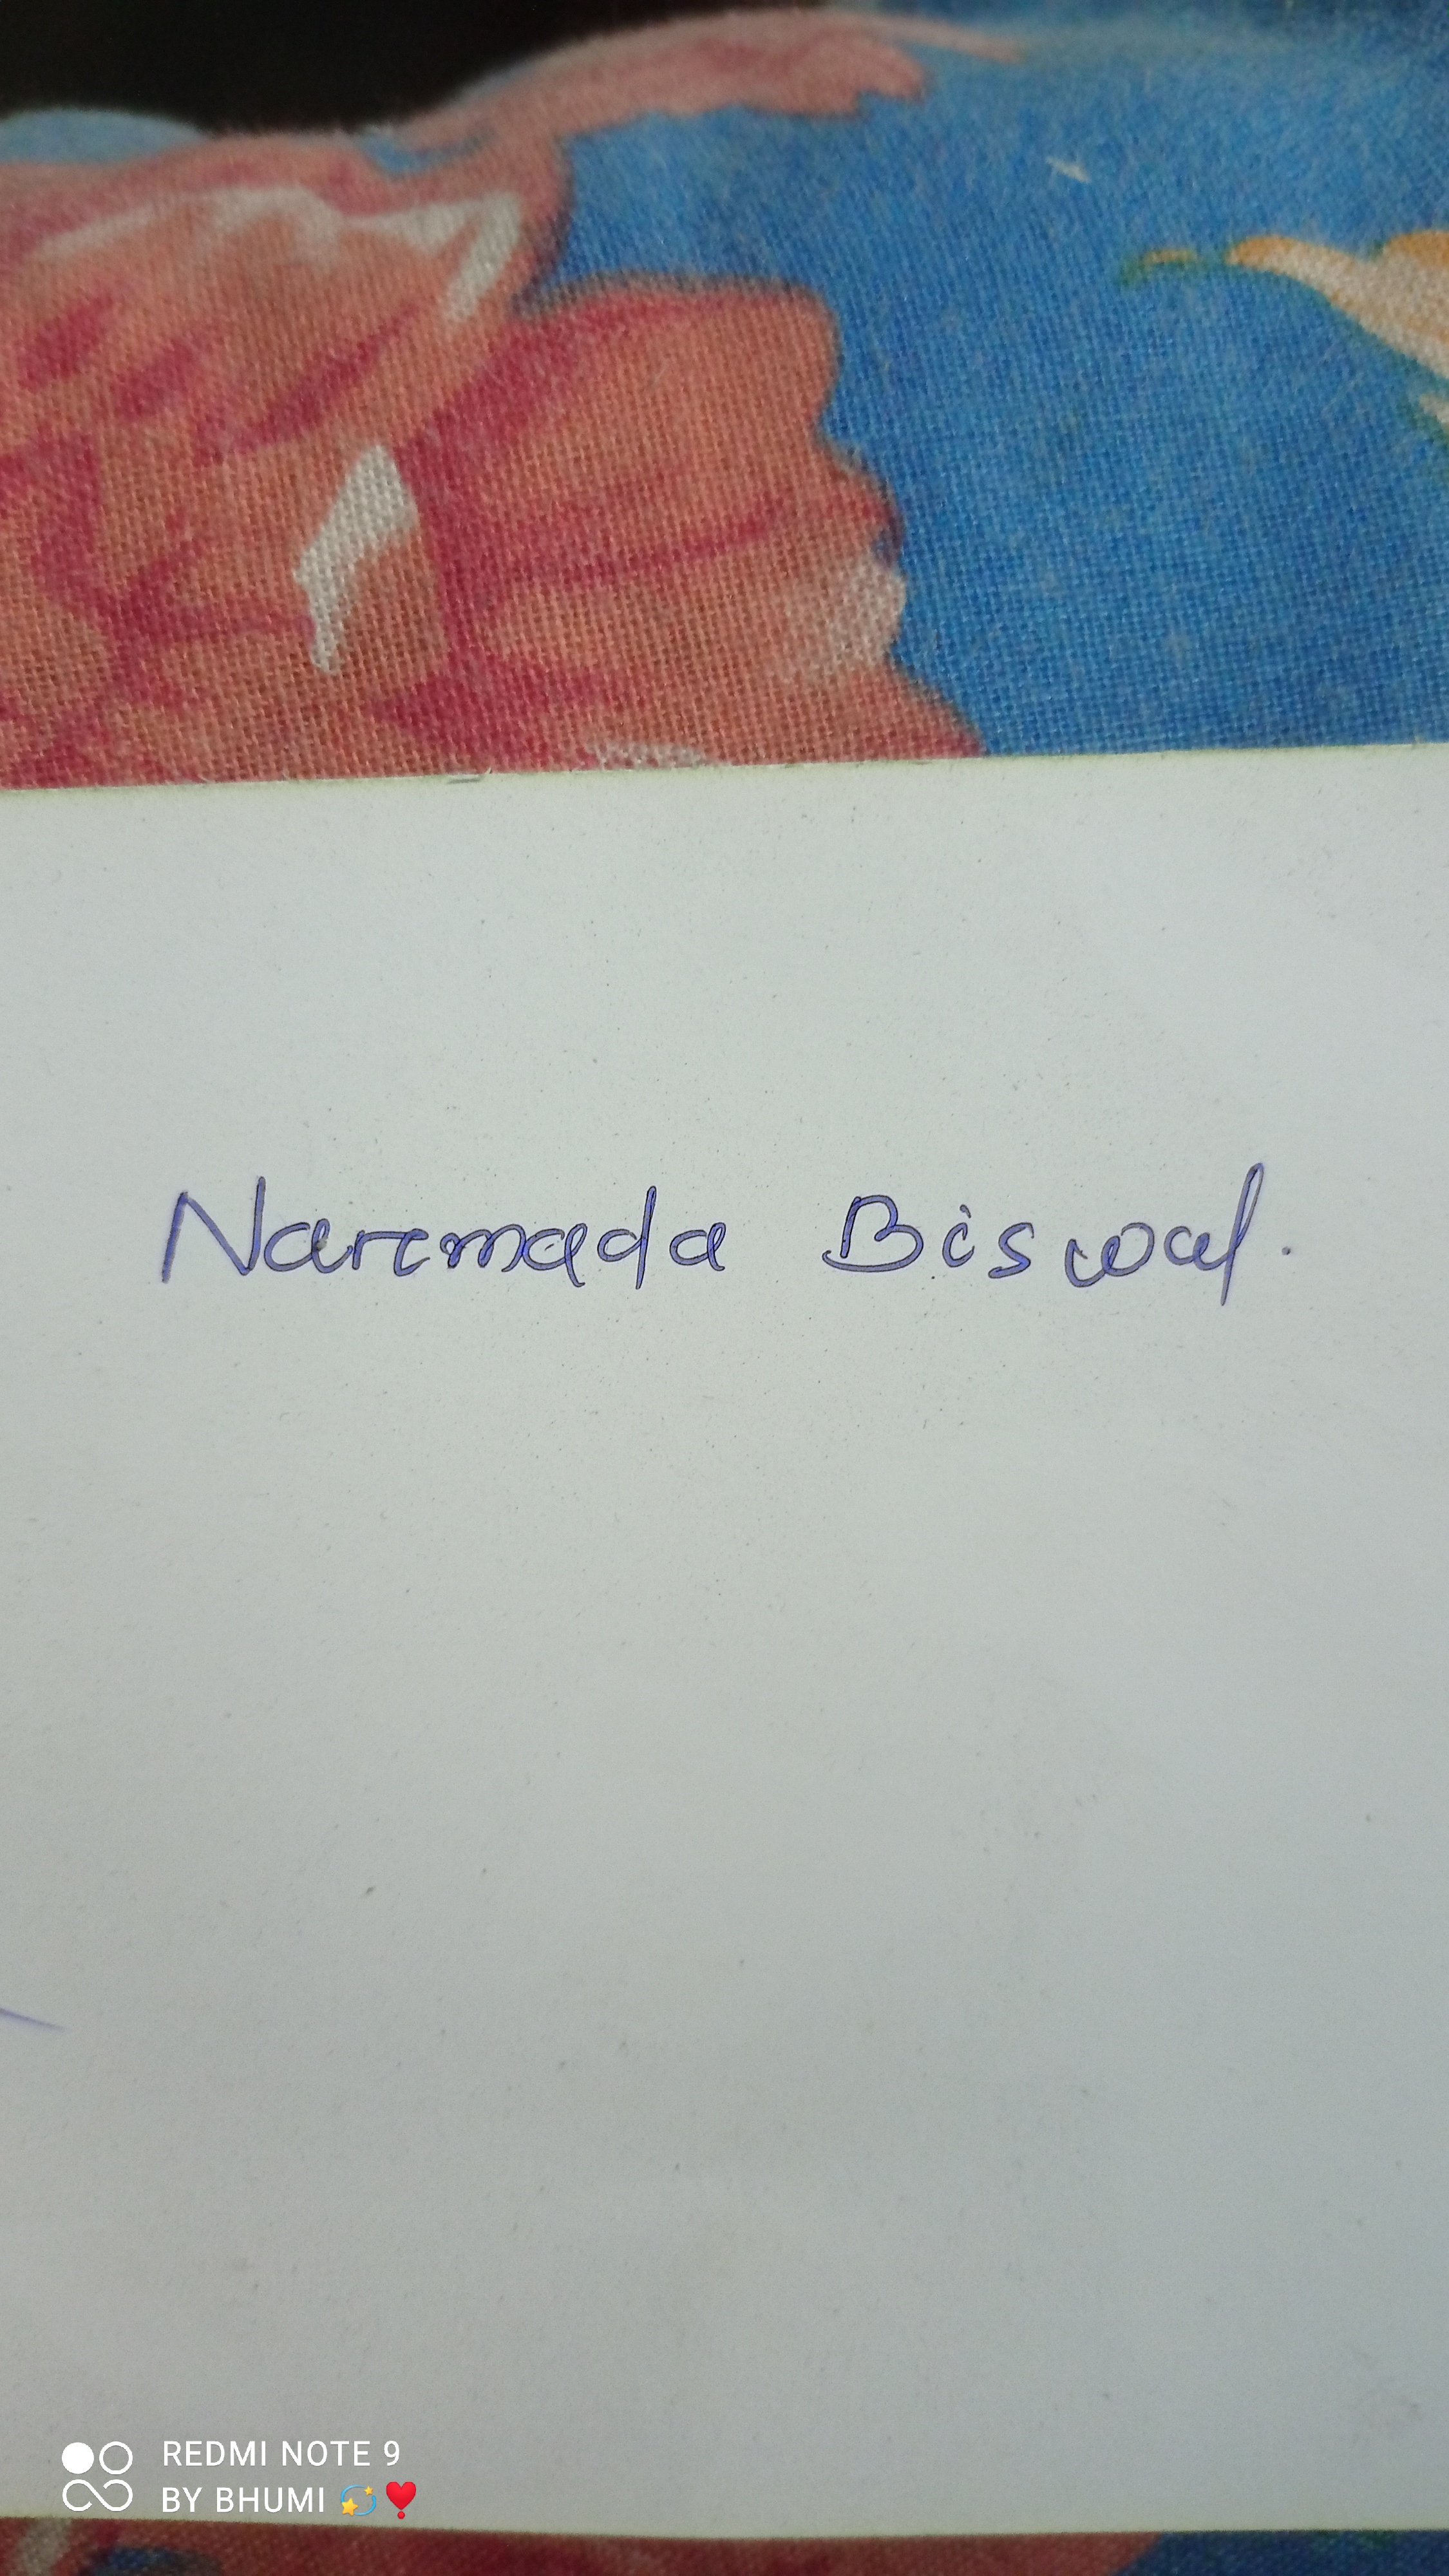 Narmada Biswal.
REDMI NOTE 9
BY BHUMI 💫❣️